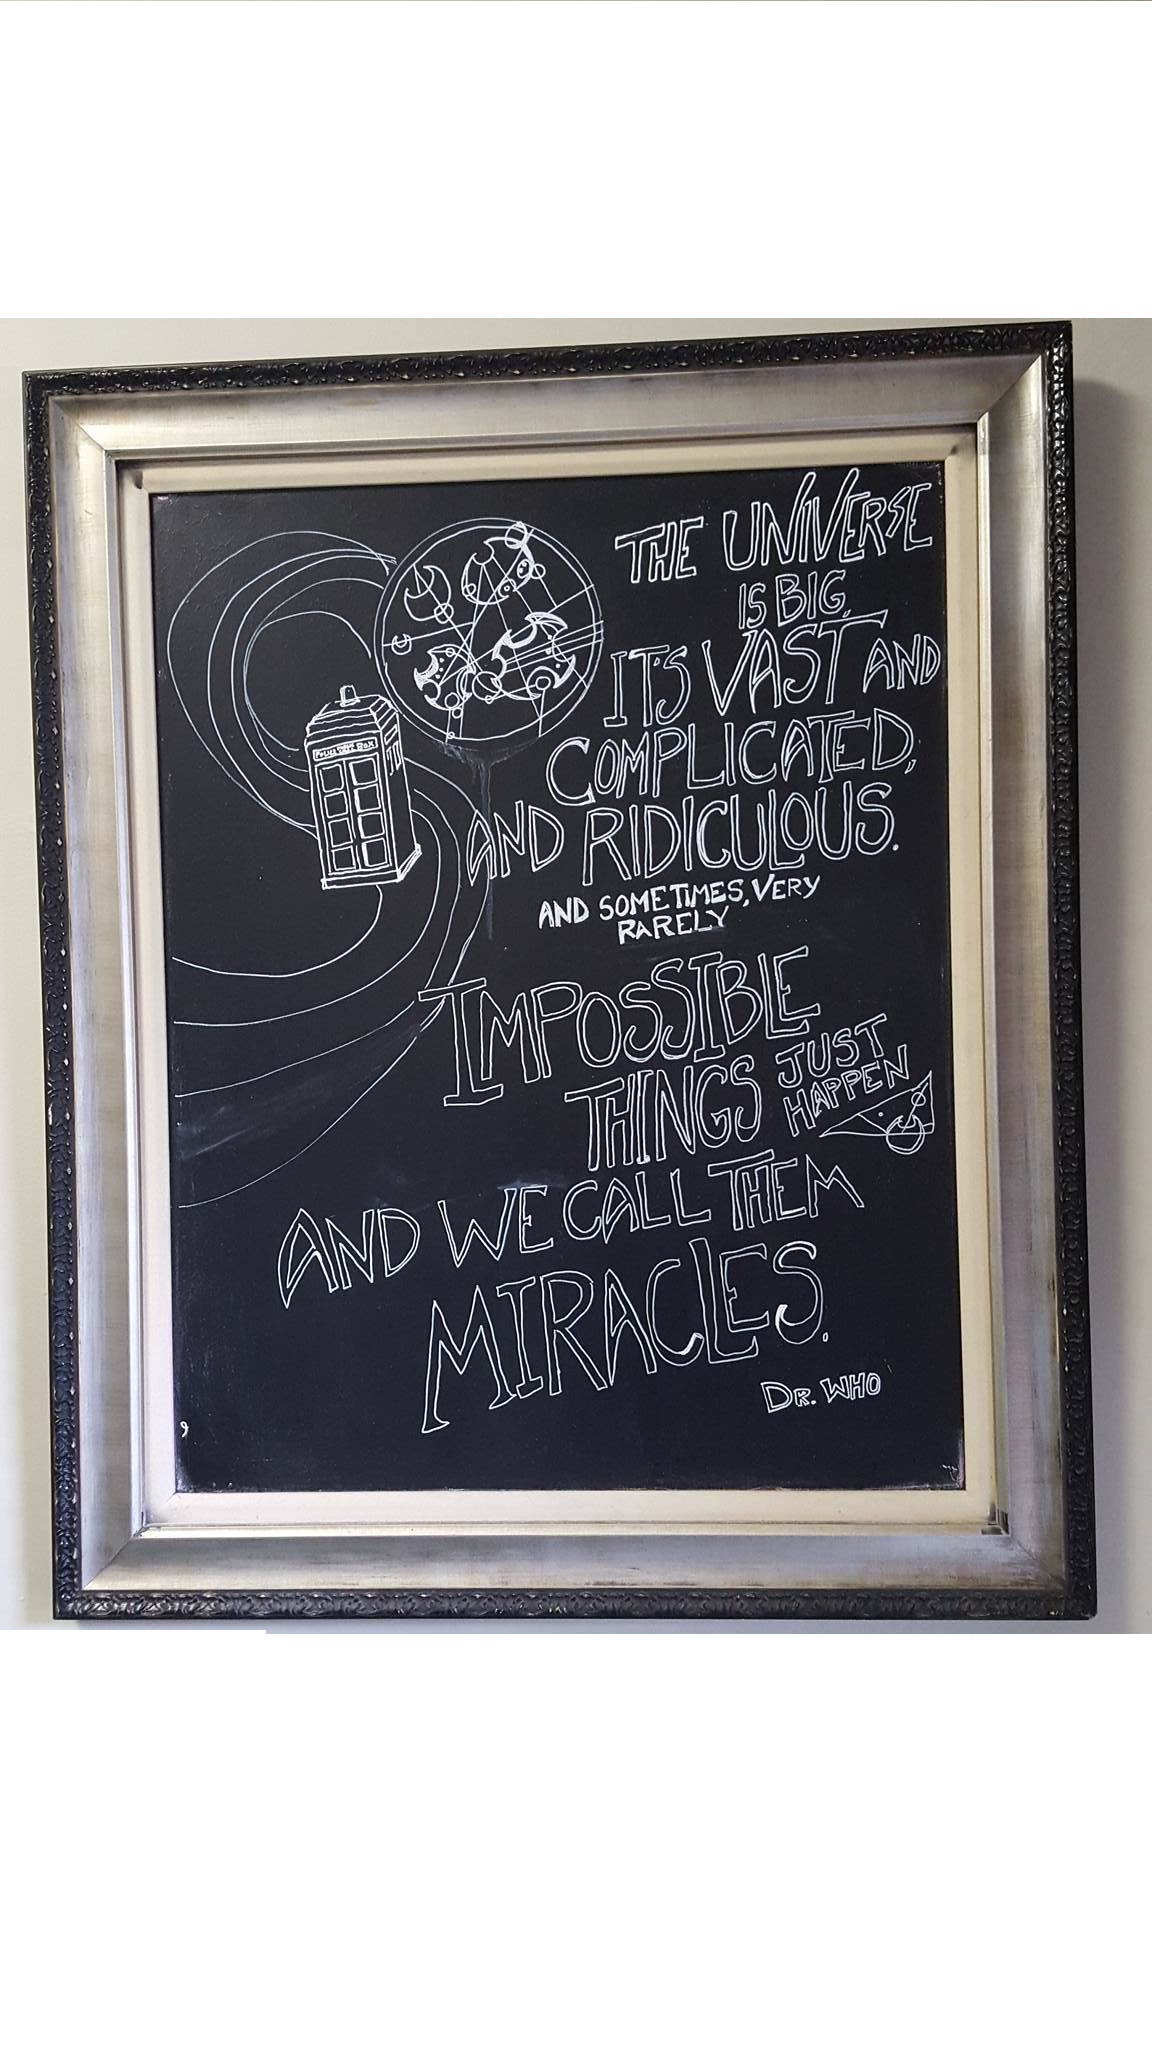 THE UNIVERSE
IS BIG,
IT'S VAST AND
COMPLICATED,
AND RIDICULOUS.
AND SOMETIMES, VERY
RARELY
IMPOSSIBLE
THINGS JUST
HAPPEN
AND WE CALL THEM
MIRACLES.
DR. WHO
POLICE BOX